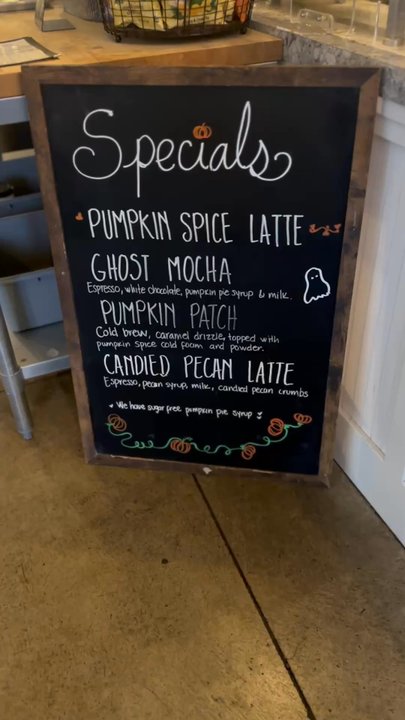 Specials
PUMPKIN SPICE LATTE
GHOST MOCHA
Espresso, white chocolate, pumpkin pie syrup & milk.
PUMPKIN PATCH
Cold brew, caramel drizzle, topped with
pumpkin spice cold foam and powder.
CANDIED PECAN LATTE
Espresso, pecan syrup, milk, candied pecan crumbs
We have sugar free pumpkin pie syrup